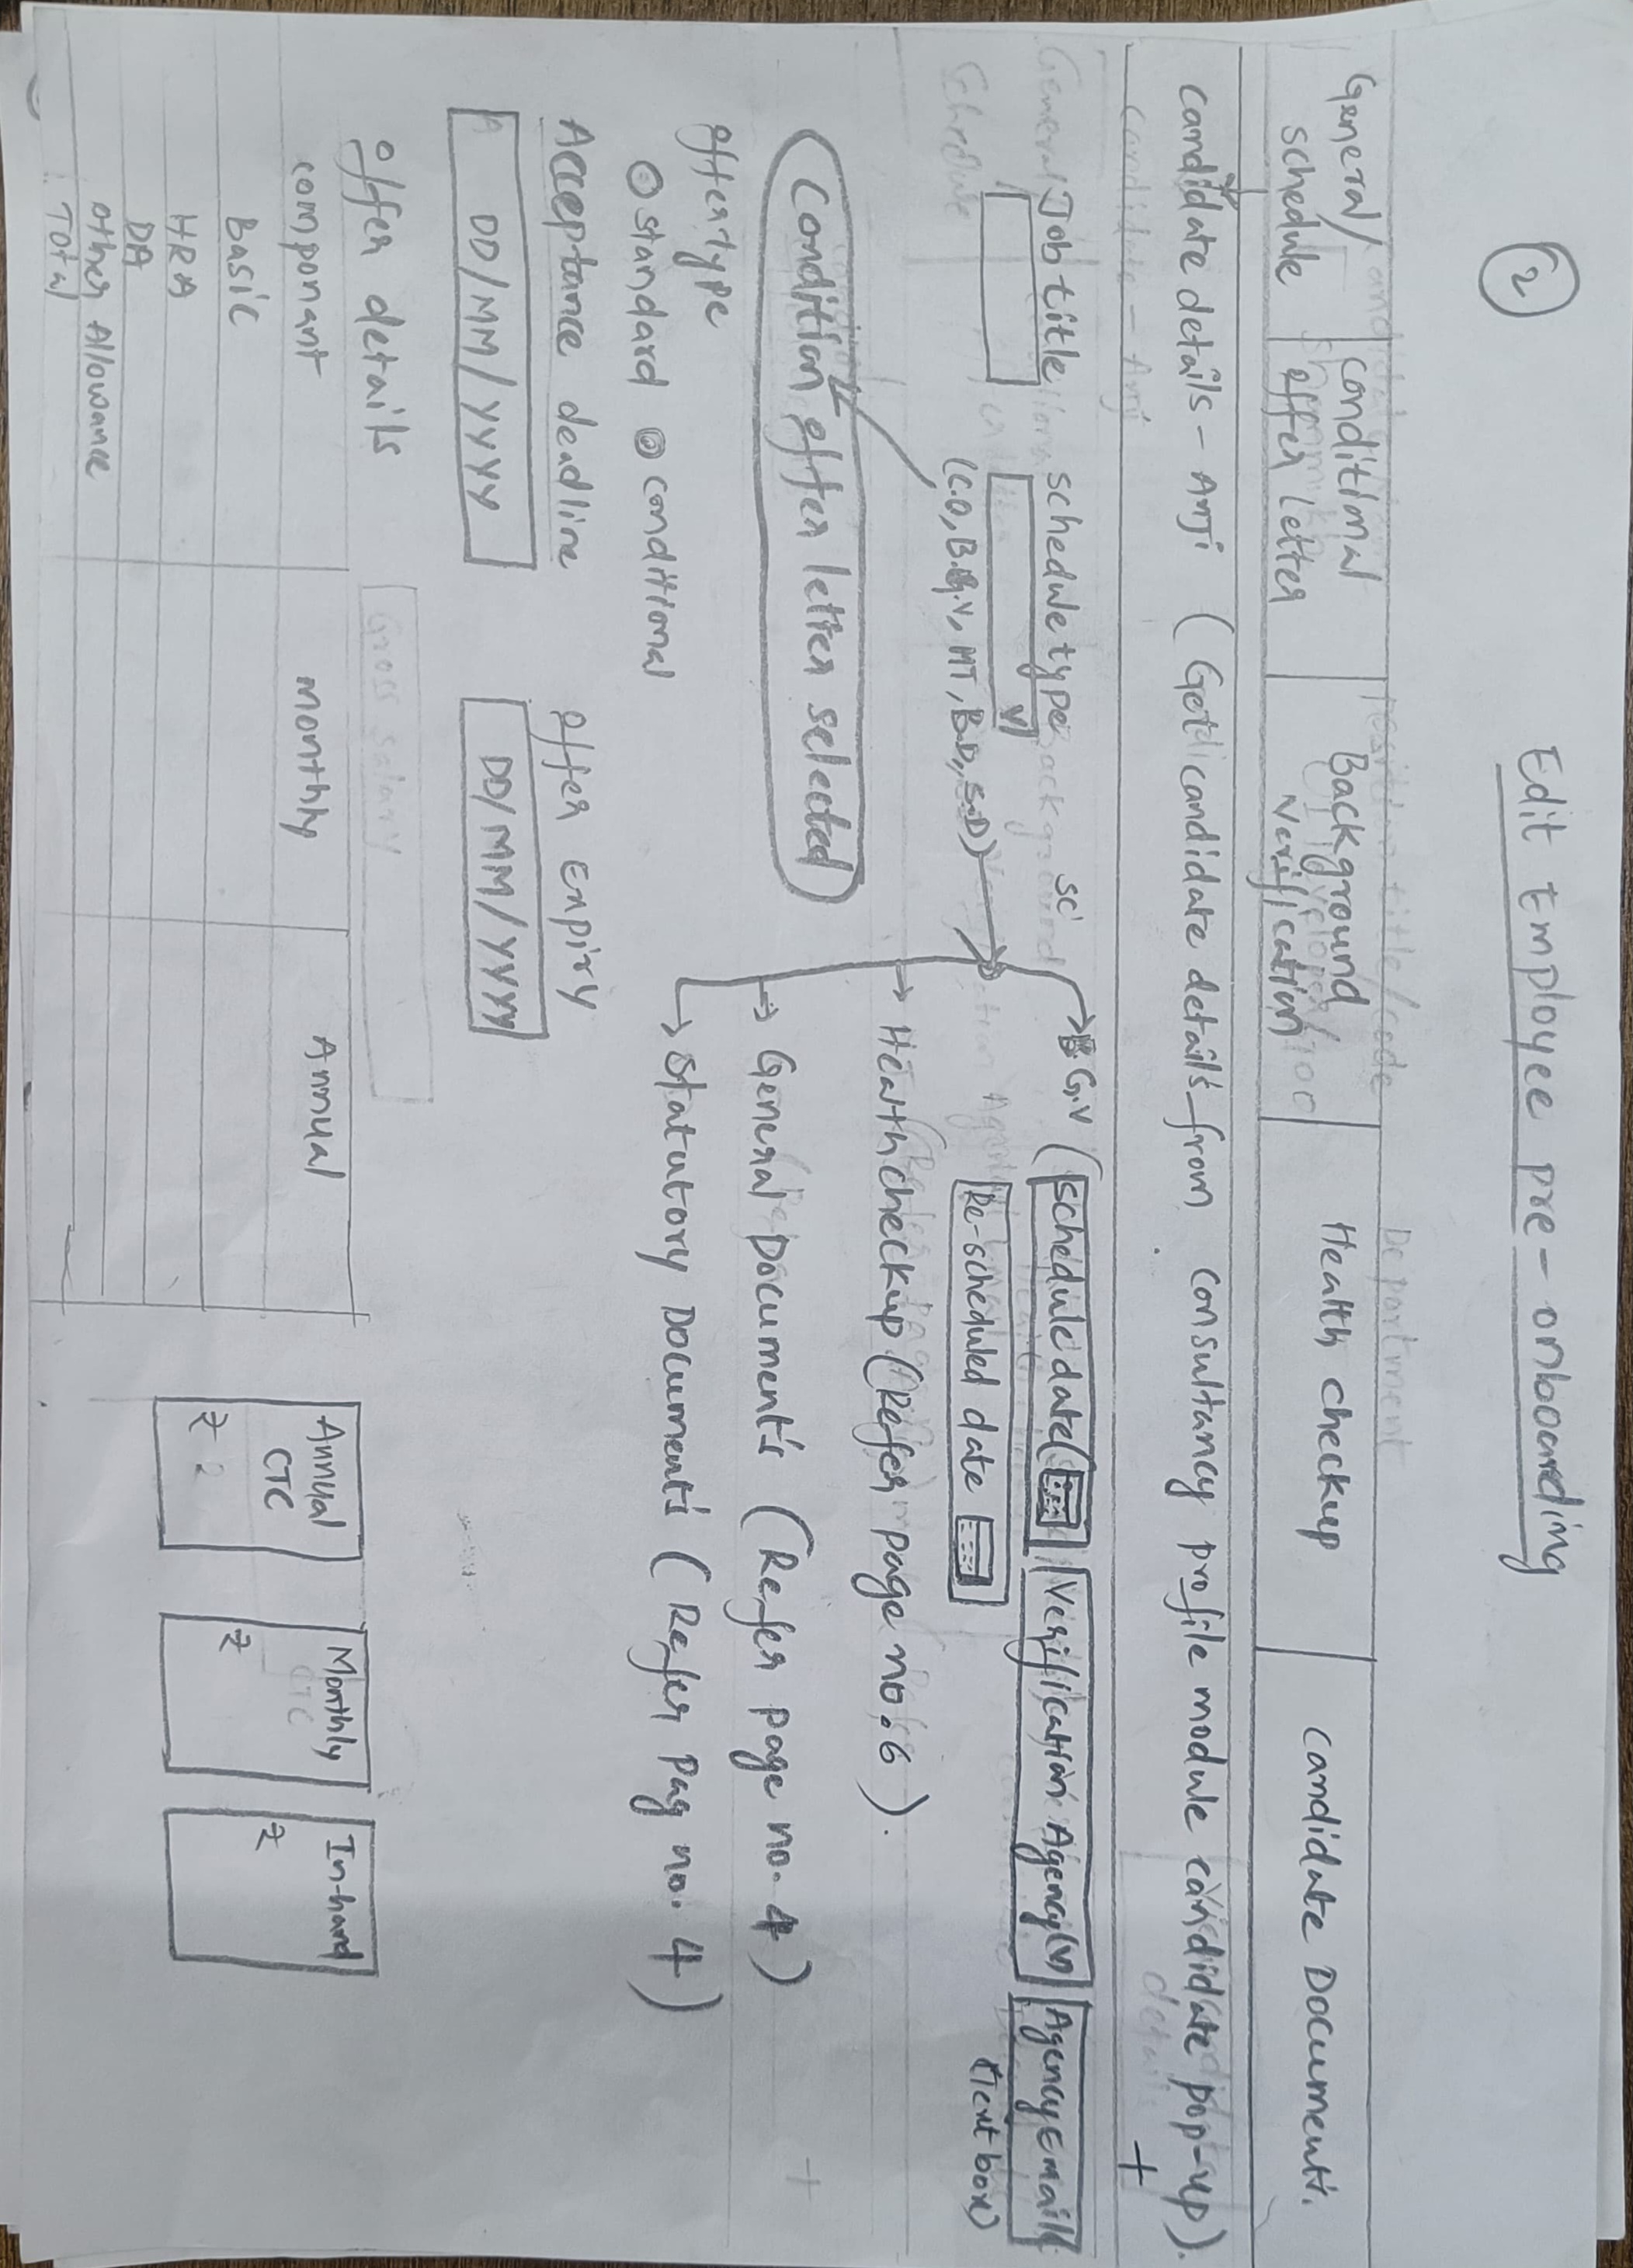 2
Edit Employee pre-onboarding
General/ schedule
conditional offer letter
Background Verification
Health checkup
candidate Documents.
candidate details - Anji (Get candidate details from consultancy profile module candidate pop-up).
+
Job title
schedule type
(C.O, B.G.V, HT, B.D, S.D)
sc'
B G.V (schedule date
Verification Agency (V)
Agency Email
(Text box)
Re-scheduled date
→ Health checkup (Refer page no. 6).
→ General Document's (Refer page no. 4)
→ Statutory Document's (Refer pag no. 4)
Condition offer letter selected
offer type
standard
conditional
Acceptance deadline
offer Expiry
DD/MM/YYYY
DD/MM/YYYY
offer details
componant
monthly
Annual
Basic
HRA
DA
other Allowance
Total
Annual CTC
₹
Monthly
₹
In-hand
₹